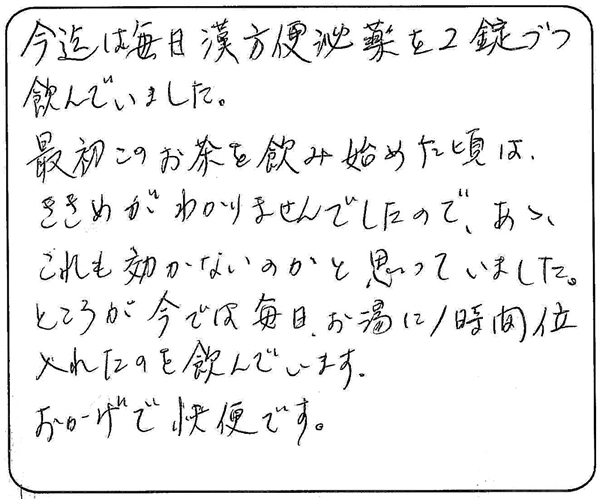 今迄は毎日漢方便泌薬を2錠づつ
飲んでいました。
最初このお茶を飲み始めた頃は、
ききめがわかりませんでしたので、あゝ、
これも効かないのかと思っていました。
ところが今では毎日、お湯に1時間位
入れたのを飲んでいます。
おかげで快便です。